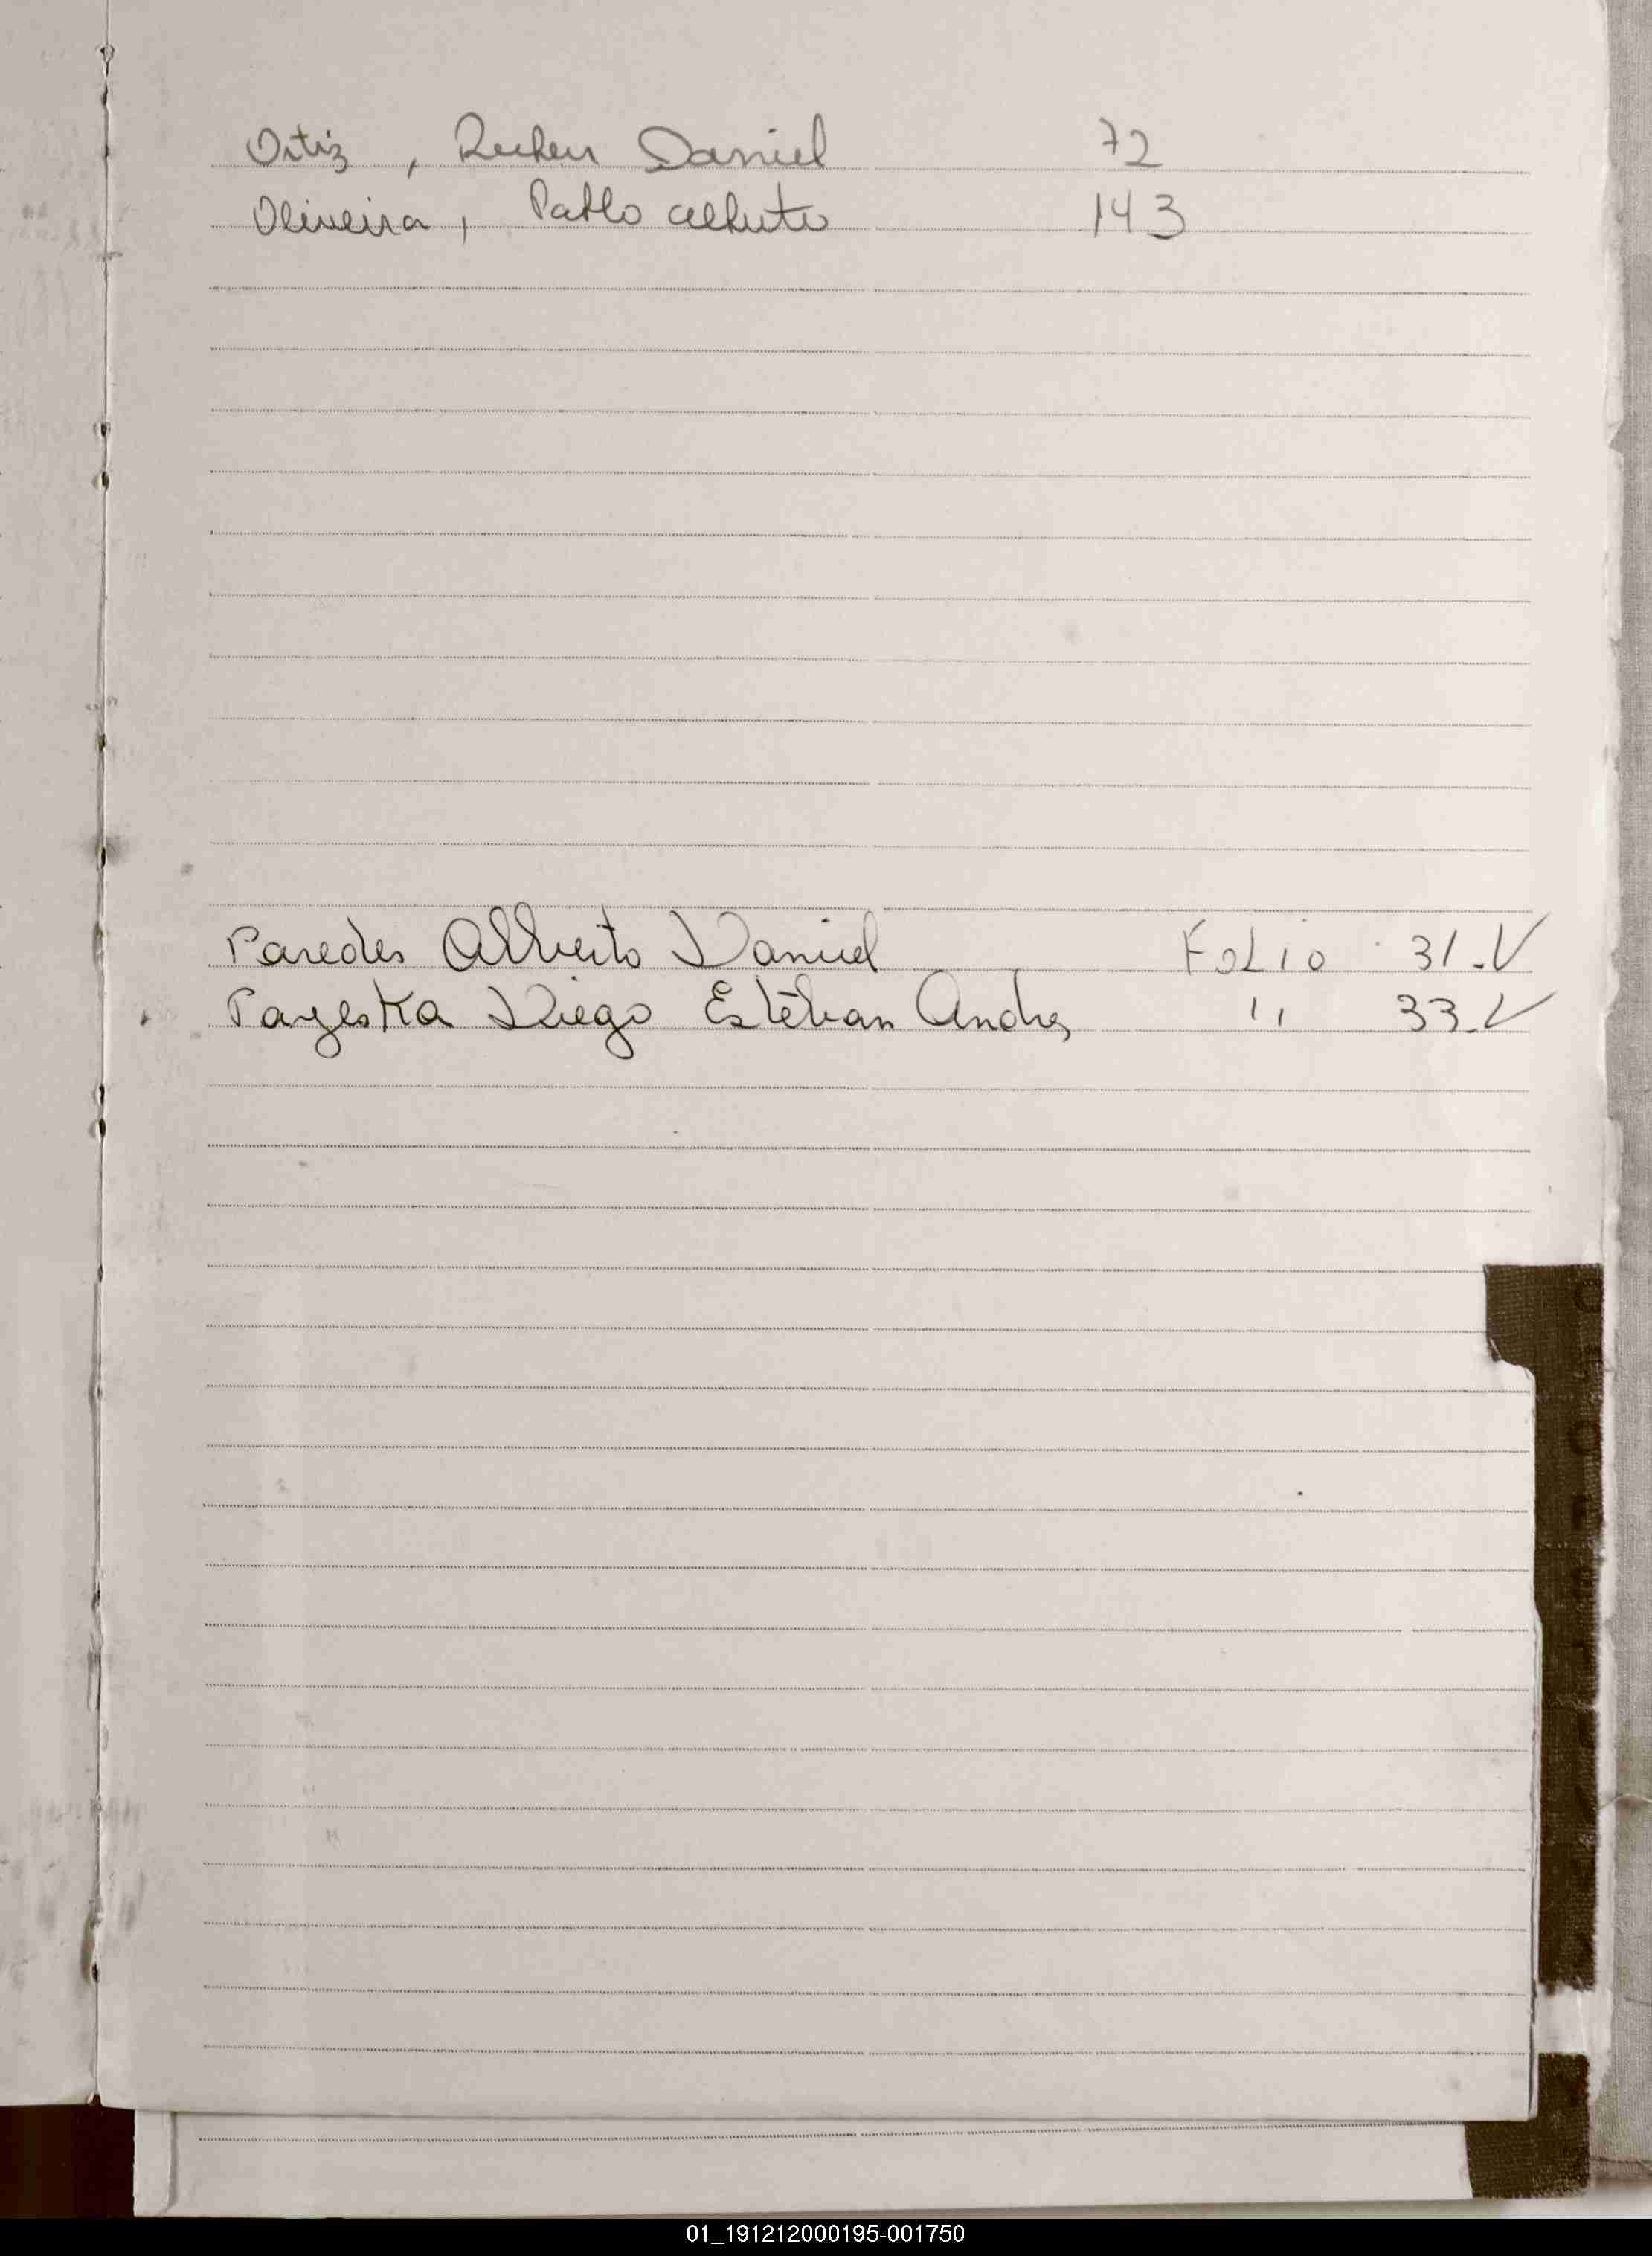 Ortiz, Ruben Daniel 72
Oliveira, Pablo alberto 143
Paredes Alberto Daniel Folio 31.V
Payeska Diego Estéban Andres " 33.V
01_191212000195-001750